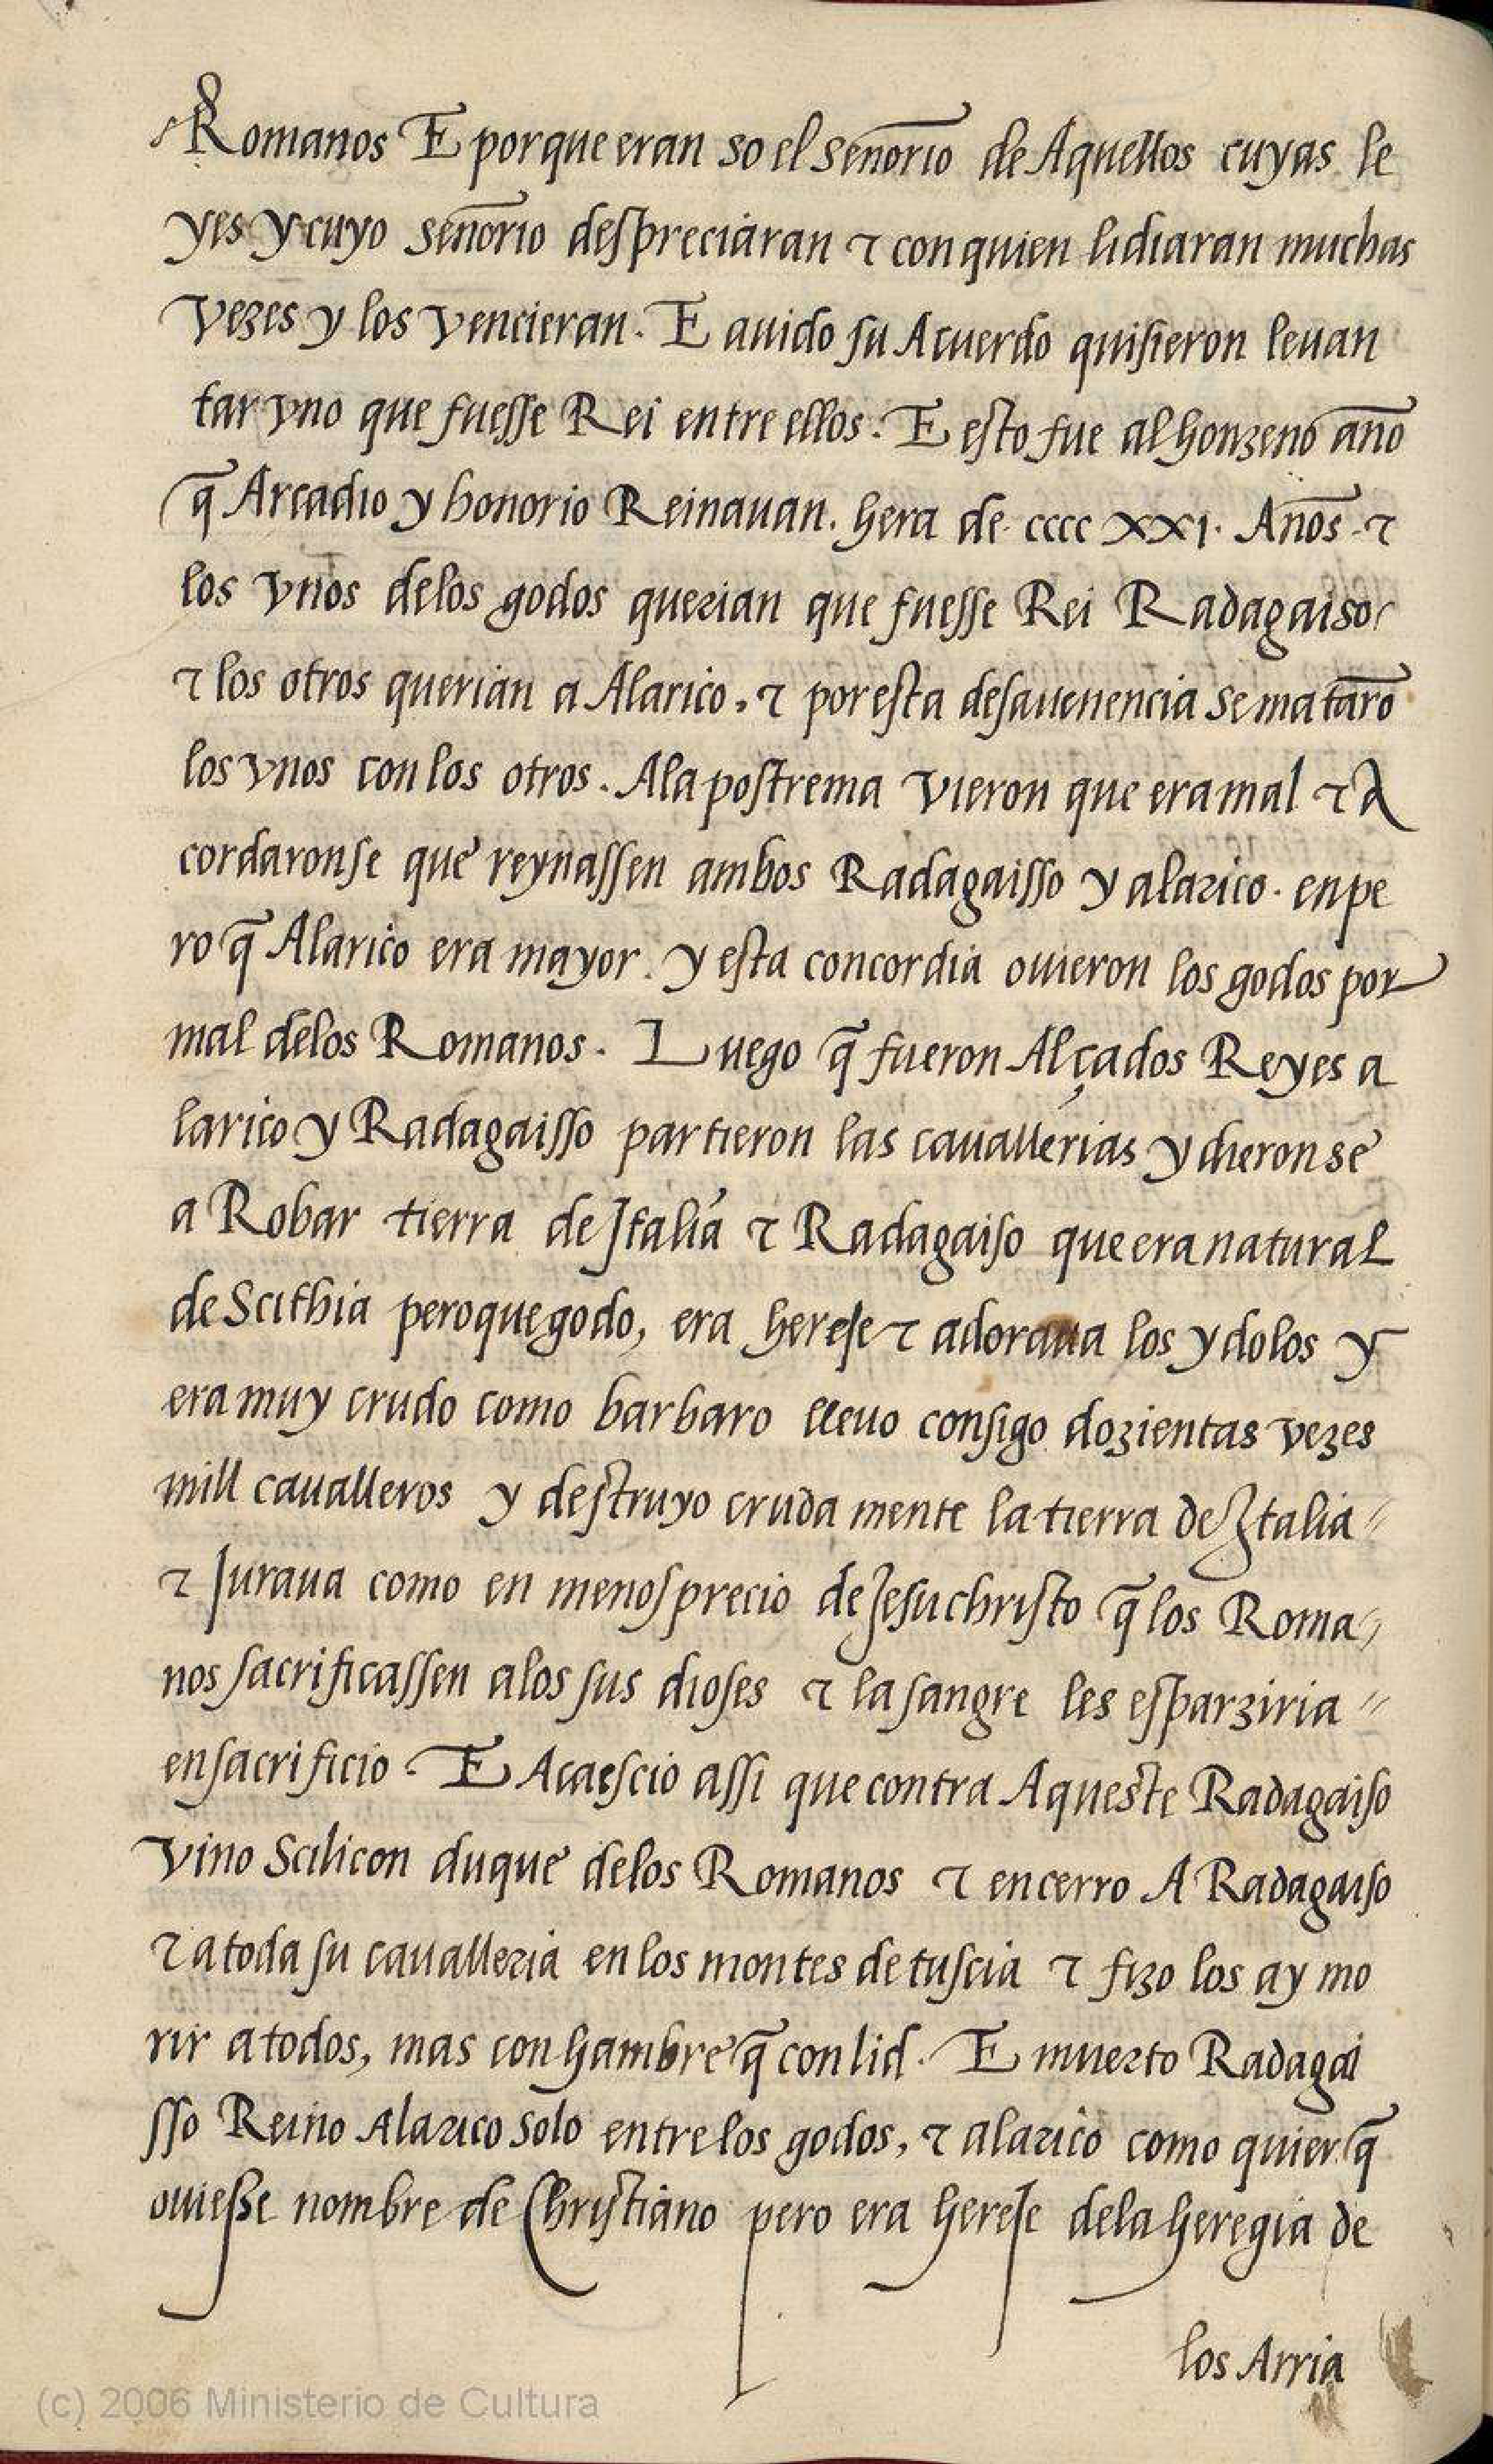 Romanos E porque eran so el señorio de Aquellos cuyas le
yes y cuyo señorio despreciaran τ con quien lidiaran muchas
vezes y los vencieran. E auido su Acuerdo quisieron leuan
tar vno que fuesse Rei entre ellos. E esto fue al honzeno año
q̃ Arcadio y honorio Reinauan. hera de cccc XXI. Años. τ
los vnos delos godos querian que fuesse Rei Radagaiso
τ los otros querian a Alarico. τ por esta desauenencia se matarõ
los vnos con los otros. Ala postrema vieron que era mal τ A
cordaronse que reynassen ambos Radagaisso y alarico. enpe
ro q̃ Alarico era mayor. y esta concordia ouieron los godos por
mal delos Romanos. Luego q̃ fueron Alçados Reyes a
larico y Radagaisso partieron las cauallerias y dieronse
a Robar tierra de Italia τ Radagaiso que era natural
de Scithia pero que godo, era hereje τ adoraua los ydolos y
era muy crudo como barbaro lleuo consigo dozientas vezes
mill caualleros y destruyo cruda mente la tierra de Italia〃
τ Juraua como en menosprecio de Jesuchristo q̃ los Roma〃
nos sacrificassen alos sus dioses τ la sangre les esparziria〃
en sacrificio. E Acaescio assi que contra Aqueste Radagaiso
vino Scilicon duque delos Romanos τ encerro A Radagaiso
τ a toda su caualleria en los montes de tuscia τ fizo los ay mo
rir a todos, mas con hambre q̃ con lid. E muerto Radagai
sso Reino Alarico solo entre los godos, τ alarico como quier q̃
ouiesse nombre de Christiano pero era hereje dela heregia de
los Arria
(c) 2006 Ministerio de Cultura